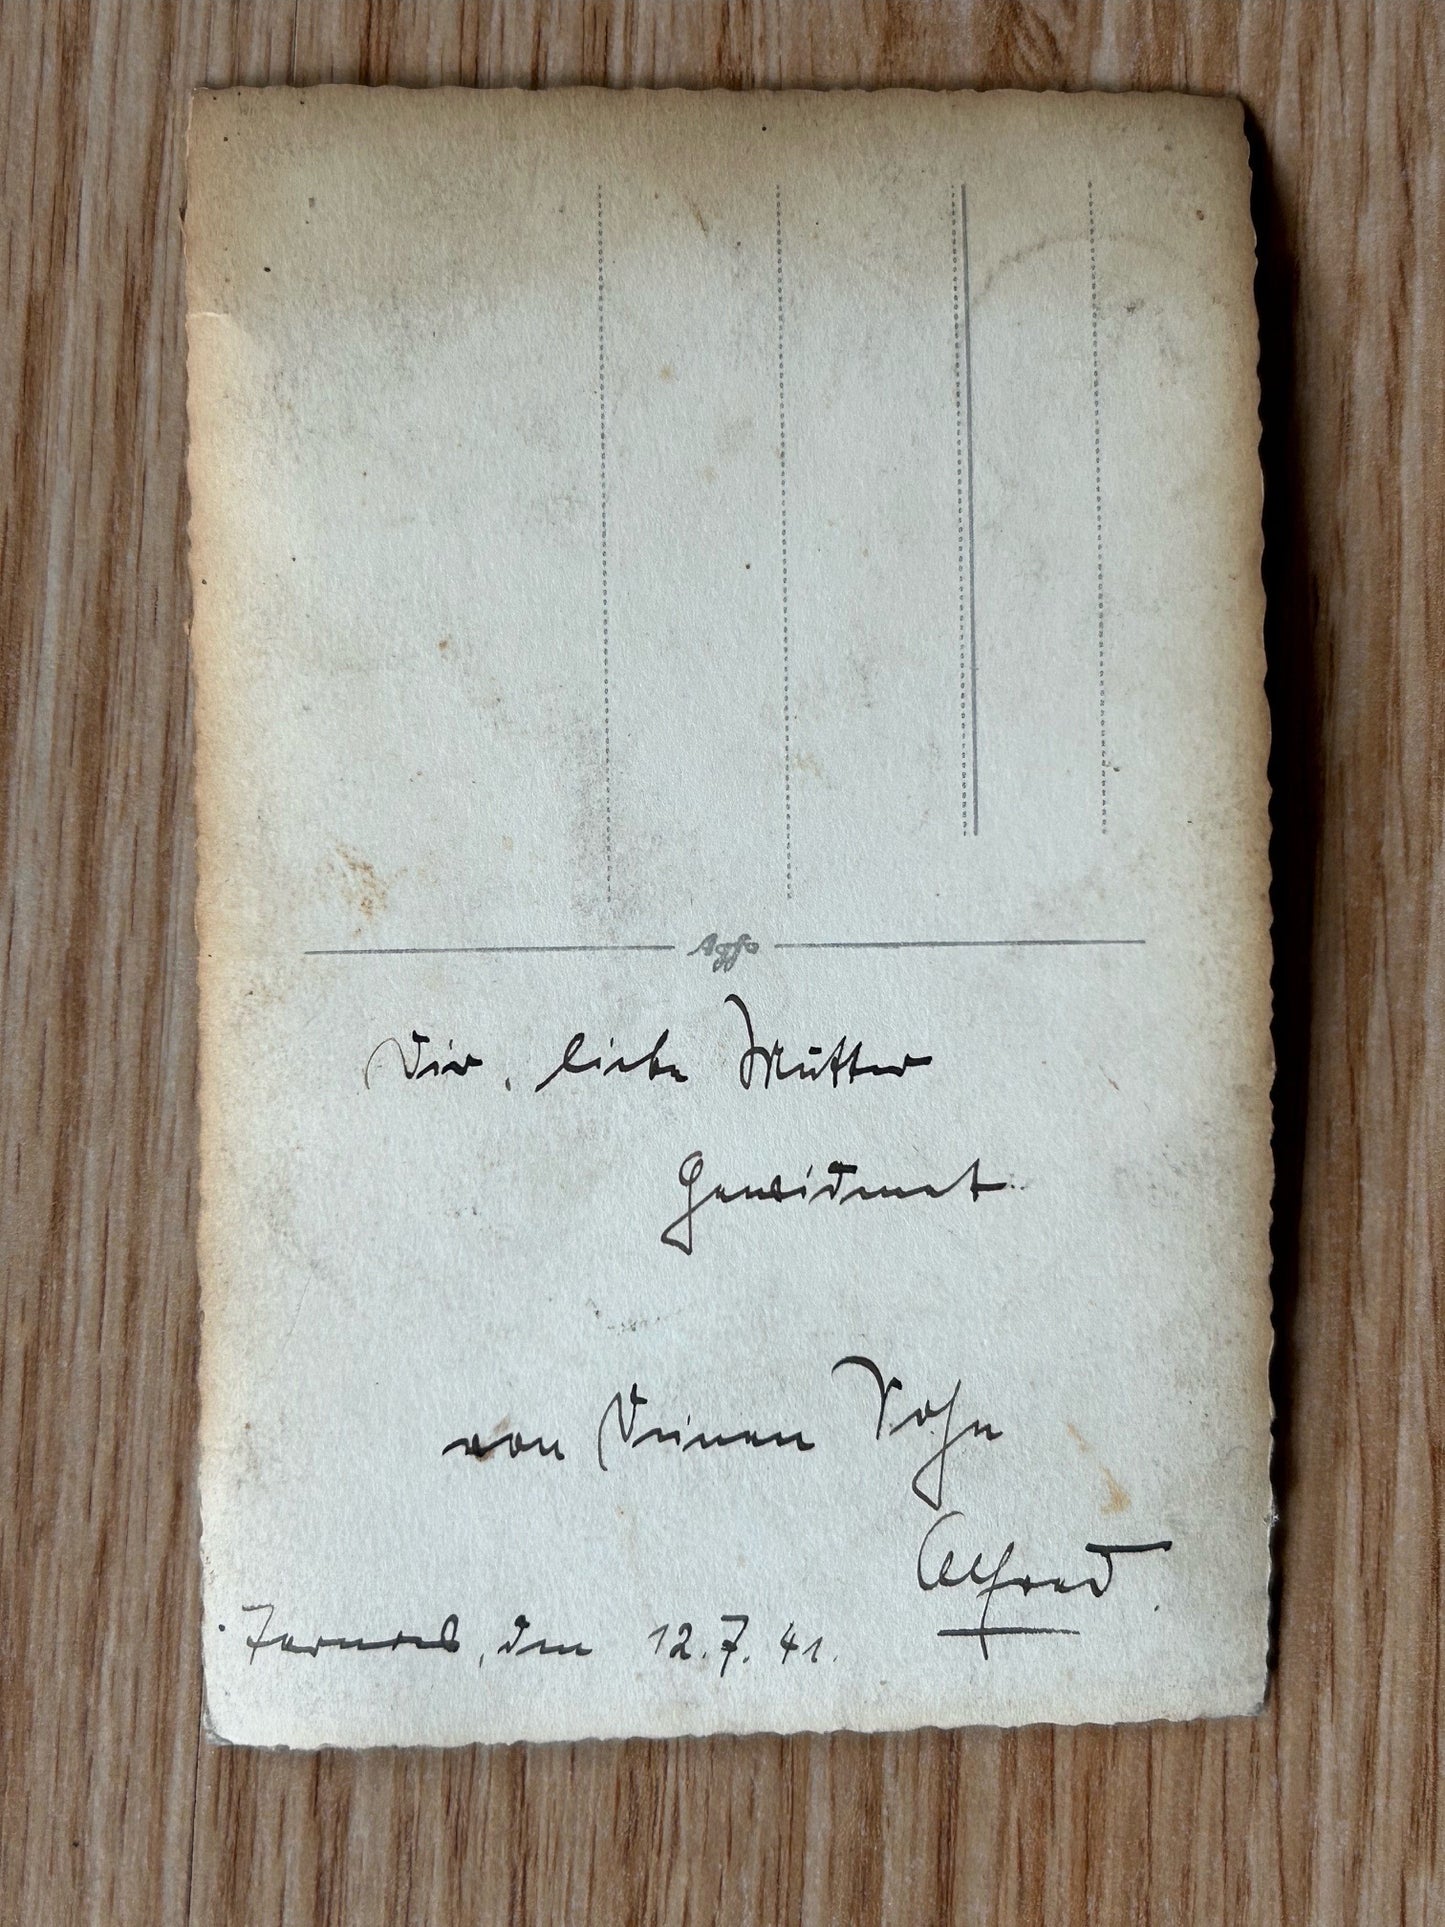 Agfa
Dir, liebe Mutter
Gewidmet
von Deinem Sohn
Alfred
den 12.7.41.